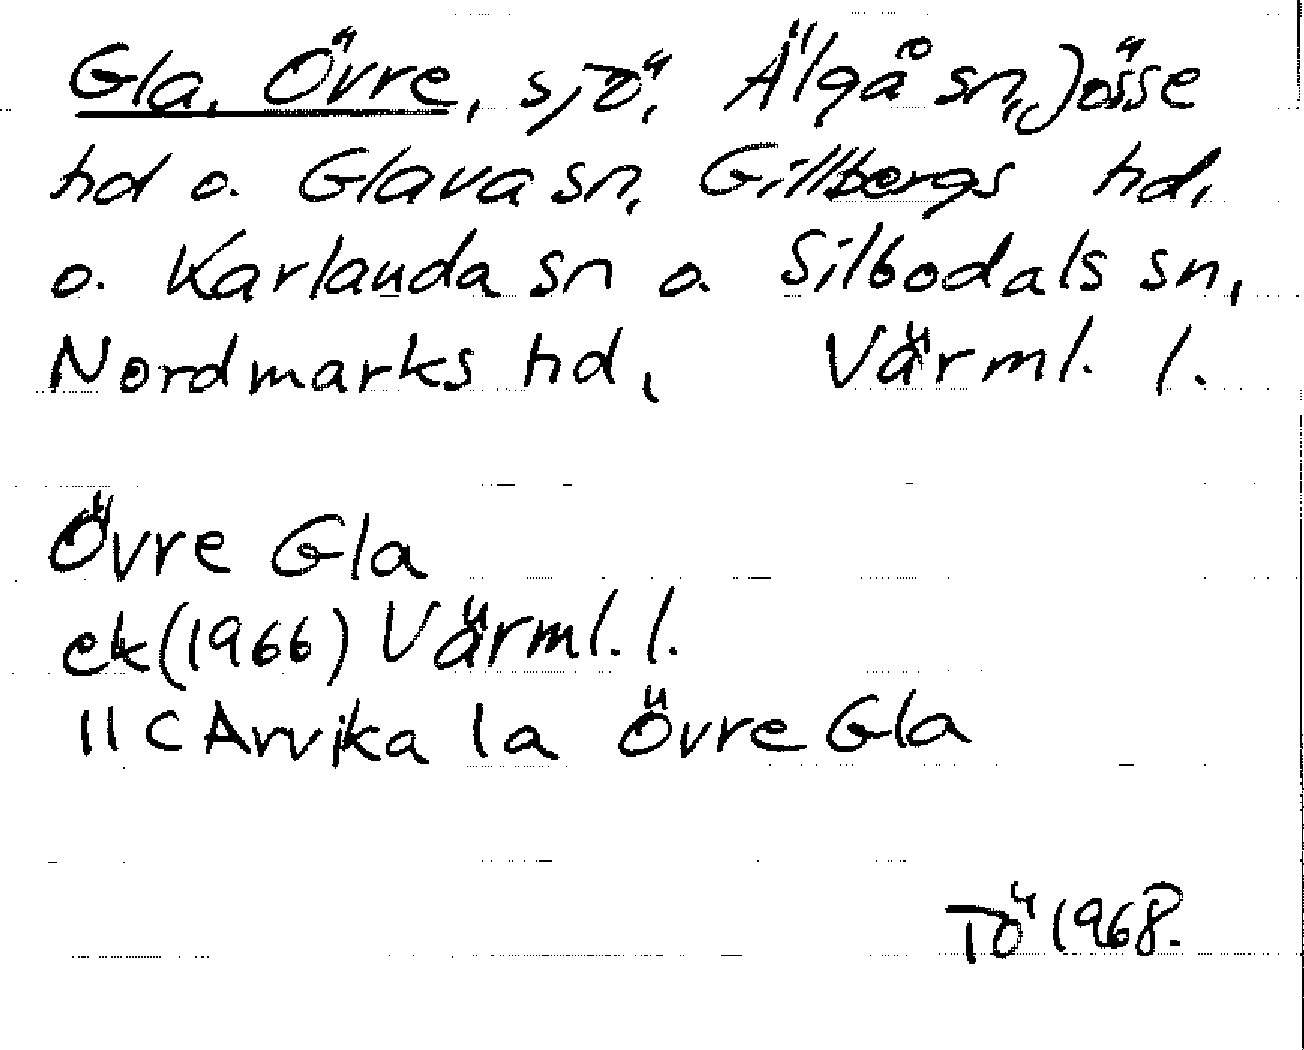 Gla, Övre, sjö, Älgå sn, Jösse
hd o. Glava sn, Gillbergs hd,
o. Karlanda sn o. Silbodals sn,
Nordmarks hd, Värml. l.
Övre Gla
ek(1966) Värml. l.
11C Arvika 1a Övre Gla
TÖ 1968.